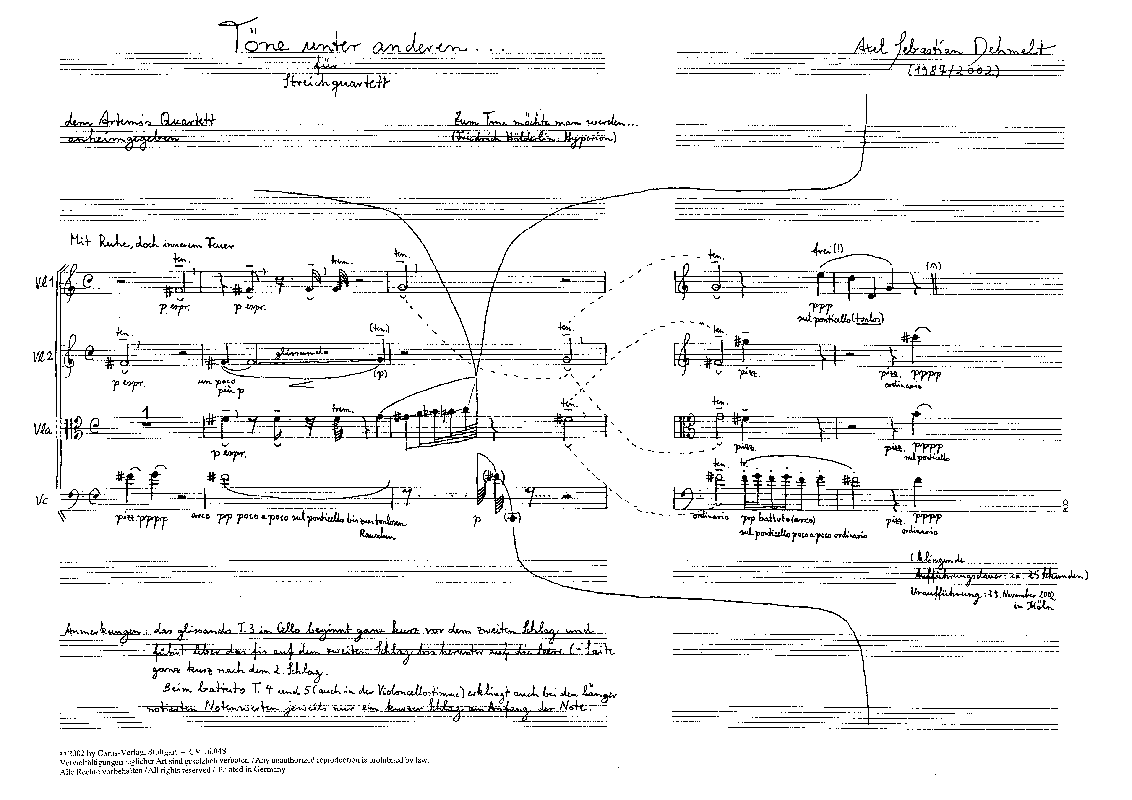 Töne unter anderen...
für
Streichquartett
Axel Sebastian Dehmelt
(1987/2002)
dem Artemis Quartett
anheimgegeben
Zum Tone möchte man werden...
(Friedrich Hölderlin, Hyperion)
Mit Ruhe, doch innerem Feuer
Vl 1
ten.
p espr.
p espr.
trem.
ten.
ten.
frei(!)
ppp
sul ponticello (tonlos)
Vl 2
ten.
p espr.
un poco
più p
glissando
(ten.)
(p)
ten.
ten.
pizz.
pizz. pppp
ordinario
Vla
1
p espr.
trem.
ten.
ten.
pizz.
pizz. pppp
sul ponticello
Vc
pizz. pppp
arco pp poco a poco sul ponticello bis zum tonlosen
Rauschen
p
ten.
tr
ordinario
ppp battuto (arco)
sul ponticello poco a poco ordinario
pizz. pppp
ordinario
(klingende
Aufführungsdauer: ca. 25 Sekunden)
Uraufführung: 23. November 2002
in Köln
Anmerkungen: das glissando T.3 im Cello beginnt ganz kurz vor dem zweiten Schlag und
führt über das fis auf dem zweiten Schlag bis herunter auf die leere C-Saite
ganz kurz nach dem 2. Schlag.
Beim battuto T. 4 und 5 (auch in der Violoncellostimme) erklingt auch bei den länger
notierten Notenwerten jeweils nur ein kurzer Schlag am Anfang der Note.
© 2002 by Carus-Verlag, Stuttgart – CV
Vervielfältigungen jeglicher Art sind gesetzlich verboten. / Any unauthorized reproduction is prohibited by law.
Alle Rechte vorbehalten / All rights reserved / Printed in Germany